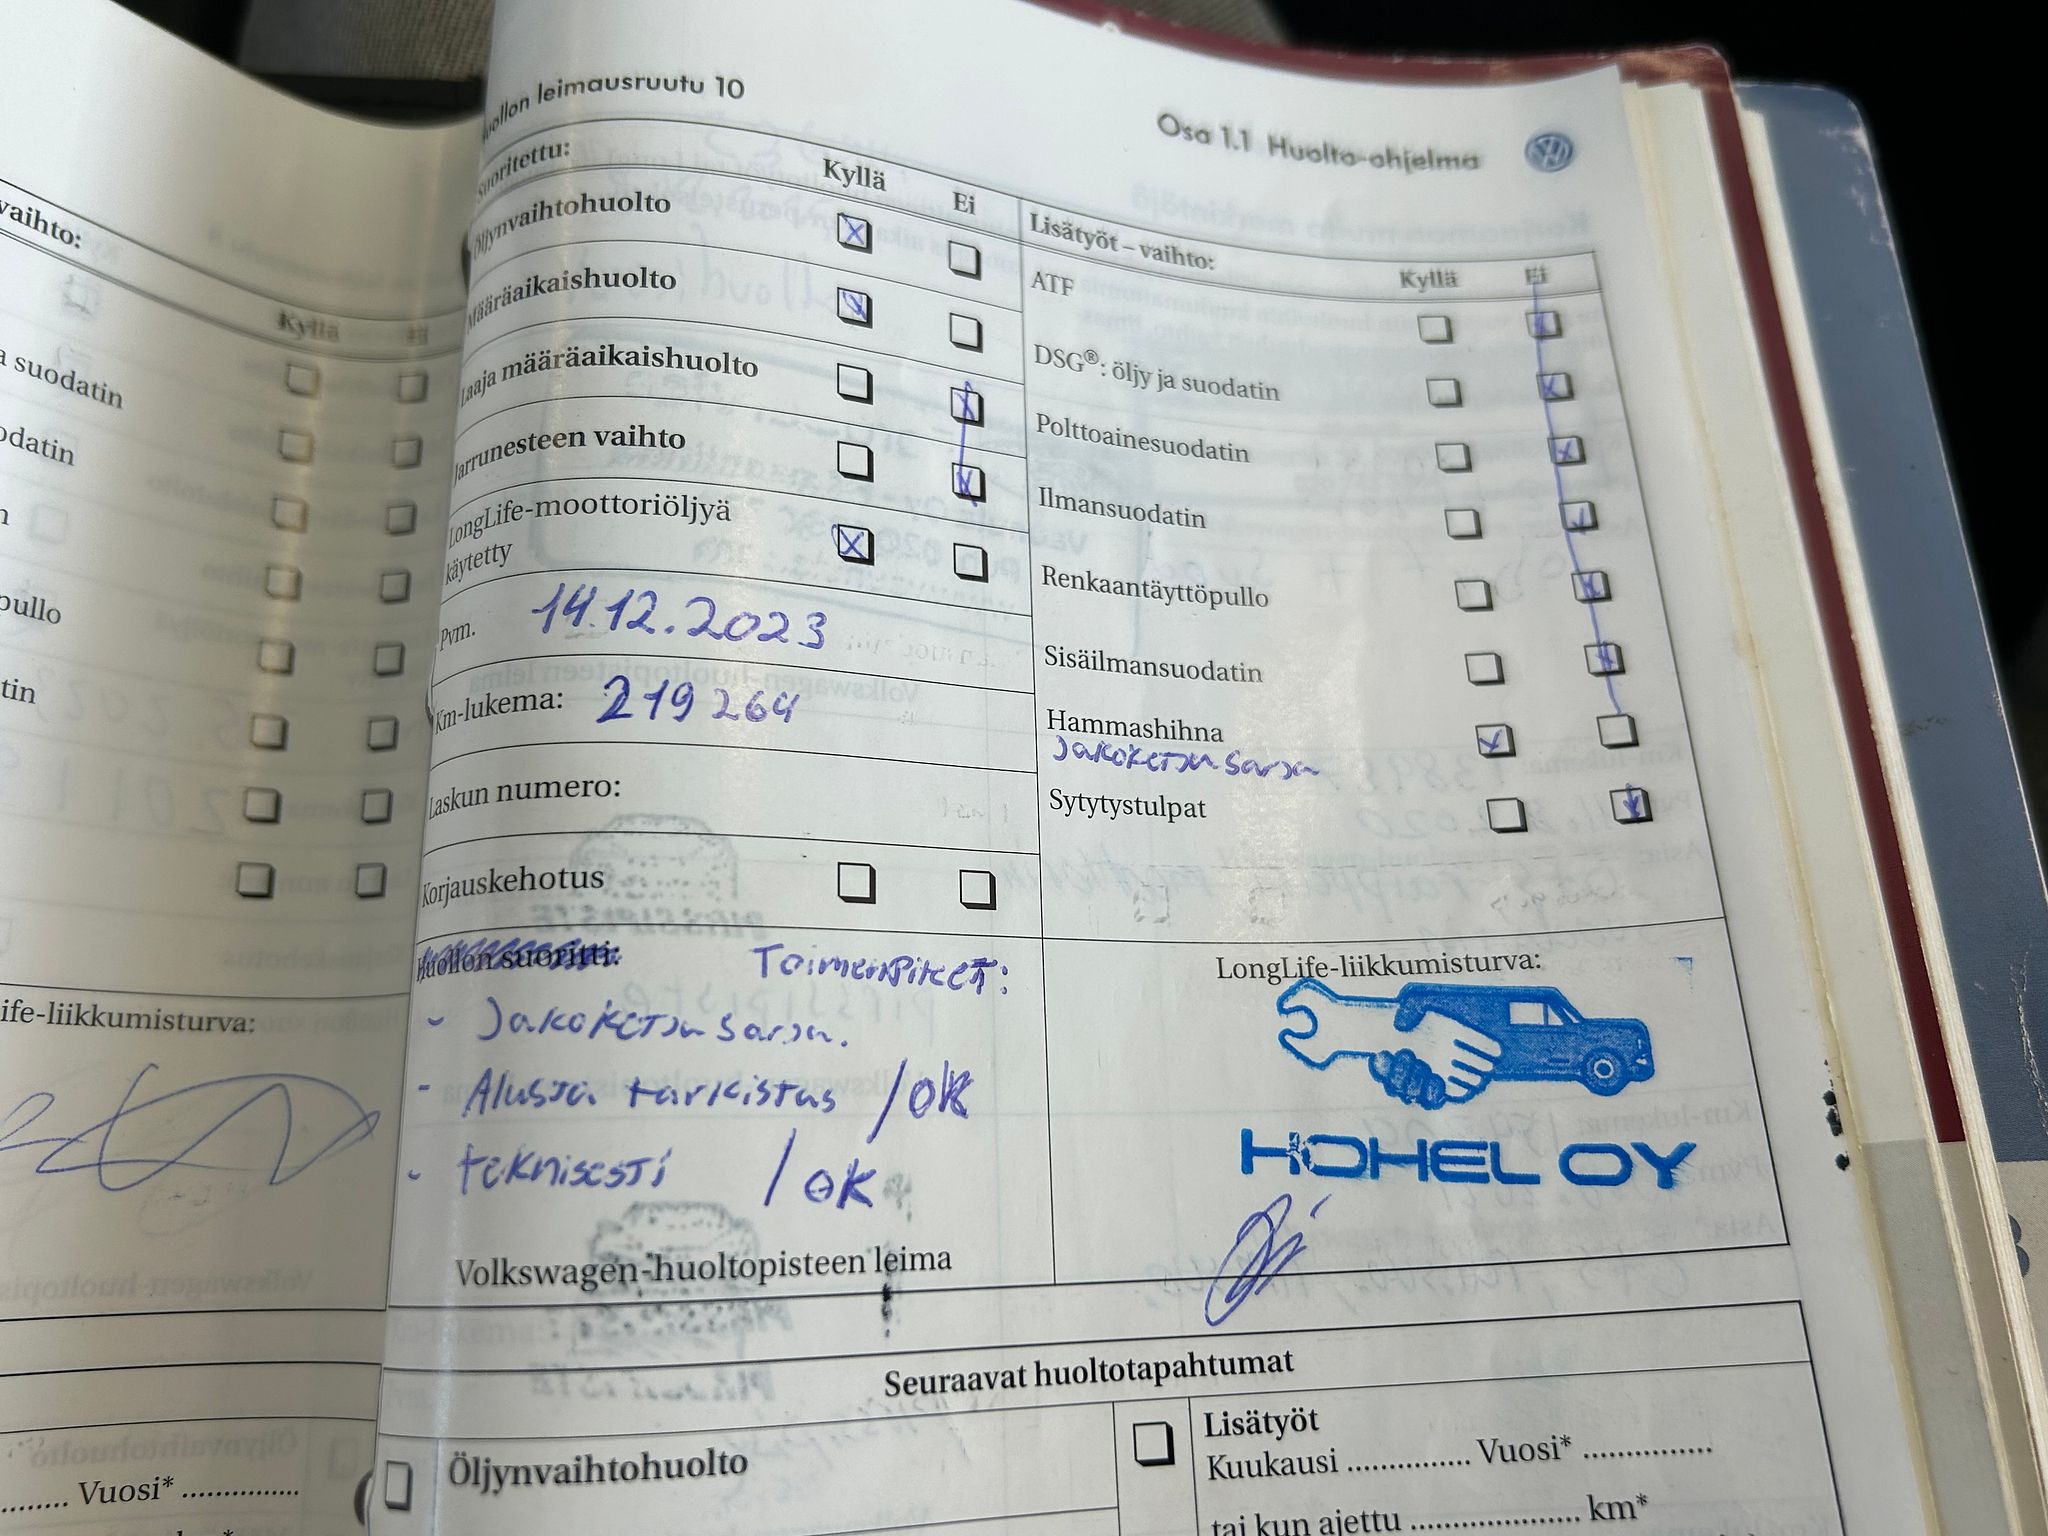 vaihto:
Kyllä
a suodatin
odatin
n
pullo
tin
ife-liikkumisturva:
Vuosi*
uollon leimausruutu 10
Osa 1.1 Huolto-ohjelma
Suoritettu: Kyllä Ei
Öljynvaihtohuolto
Määräaikaishuolto
Laaja määräaikaishuolto
Jarrunesteen vaihto
LongLife-moottoriöljyä
käytetty
Pvm. 14.12.2023
Km-lukema: 219 264
Laskun numero:
Korjauskehotus
Lisätyöt – vaihto: Kyllä Ei
ATF
DSG®: öljy ja suodatin
Polttoainesuodatin
Ilmansuodatin
Renkaantäyttöpullo
Sisäilmansuodatin
Hammashihna
Jakoketjusarja
Sytytystulpat
Huollon suoritti: Toimenpiteet:
- Jakoketjusarja.
- Alusta tarkistus / OK
- teknisesti / OK
Volkswagen-huoltopisteen leima
LongLife-liikkumisturva:
HOHEL OY
Seuraavat huoltotapahtumat
Öljynvaihtohuolto
Lisätyöt
Kuukausi .............. Vuosi* ..............
tai kun ajettu ................... km*